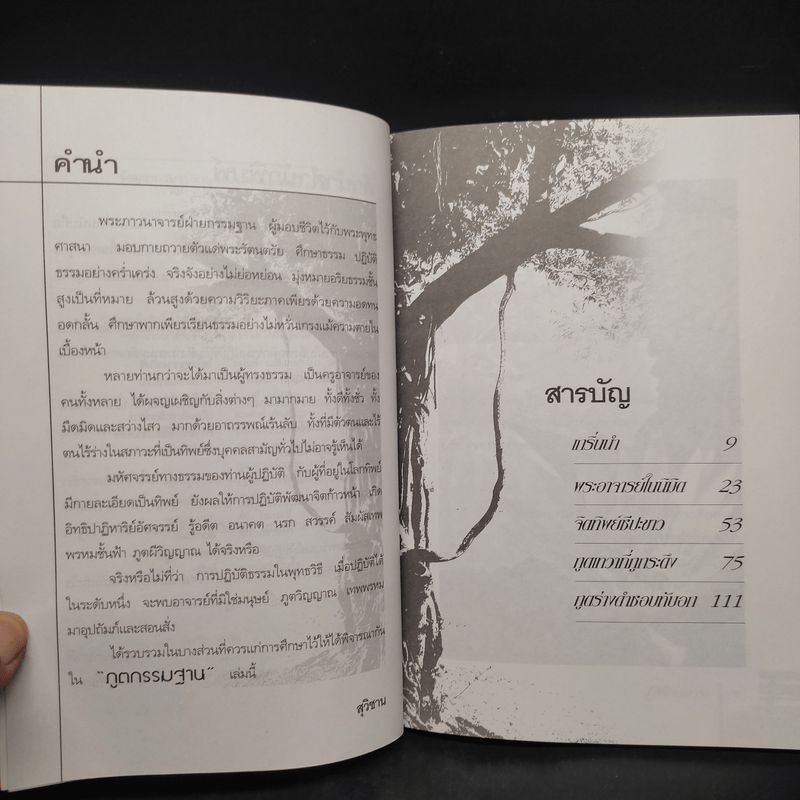 คำนำ
พระภาวนาจารย์ฝ่ายกรรมฐาน ผู้มอบชีวิตไว้กับพระพุทธ
ศาสนา มอบกายถวายตัวแด่พระรัตนตรัย ศึกษาธรรม ปฏิบัติ
ธรรมอย่างคร่ำเคร่ง จริงจังอย่างไม่ย่อหย่อน มุ่งหมายอริยธรรมชั้น
สูงเป็นที่หมาย ล้วนสูงด้วยความวิริยะภาคเพียรด้วยความอดทน
อดกลั้น ศึกษาพากเพียรเรียนธรรมอย่างไม่หวั่นเกรงแม้ความตายใน
เบื้องหน้า
หลายท่านกว่าจะได้มาเป็นผู้ทรงธรรม เป็นครูอาจารย์ของ
คนทั้งหลาย ได้ผจญเผชิญกับสิ่งต่างๆ มามากมาย ทั้งดีทั้งชั่ว ทั้ง
มืดมิดและสว่างไสว มากด้วยอาถรรพณ์เร้นลับ ทั้งที่มีตัวตนและไร้
ตนไร้ร่างในสภาวะที่เป็นทิพย์ซึ่งบุคคลสามัญทั่วไปไม่อาจรู้เห็นได้
มหัศจรรย์ทางธรรมของท่านผู้ปฏิบัติ กับผู้ที่อยู่ในโลกทิพย์
มีกายละเอียดเป็นทิพย์ ยังผลให้การปฏิบัติพัฒนาจิตก้าวหน้า เกิด
อิทธิปาฏิหาริย์อัศจรรย์ รู้อดีต อนาคต นรก สวรรค์ สัมผัสเทพ
พรหมชั้นฟ้า ภูตผีวิญญาณ ได้จริงหรือ
จริงหรือไม่ที่ว่า การปฏิบัติธรรมในพุทธวิธี เมื่อปฏิบัติได้
ในระดับหนึ่ง จะพบอาจารย์ที่มิใช่มนุษย์ ภูตวิญญาณ เทพพรหม
มาอุปถัมภ์และสอนสั่ง
ได้รวบรวมในบางส่วนที่ควรแก่การศึกษาไว้ให้ได้พิจารณากัน
ใน "ภูตกรรมฐาน" เล่มนี้
สุวิชาน
สารบัญ
เกริ่นนำ 9
พระอาจารย์ในนิมิต 23
จิตทิพย์ชีปะขาว 53
ภูตเทวาที่ภูกระดึง 75
ภูตร่างดำชอบทับอก 111